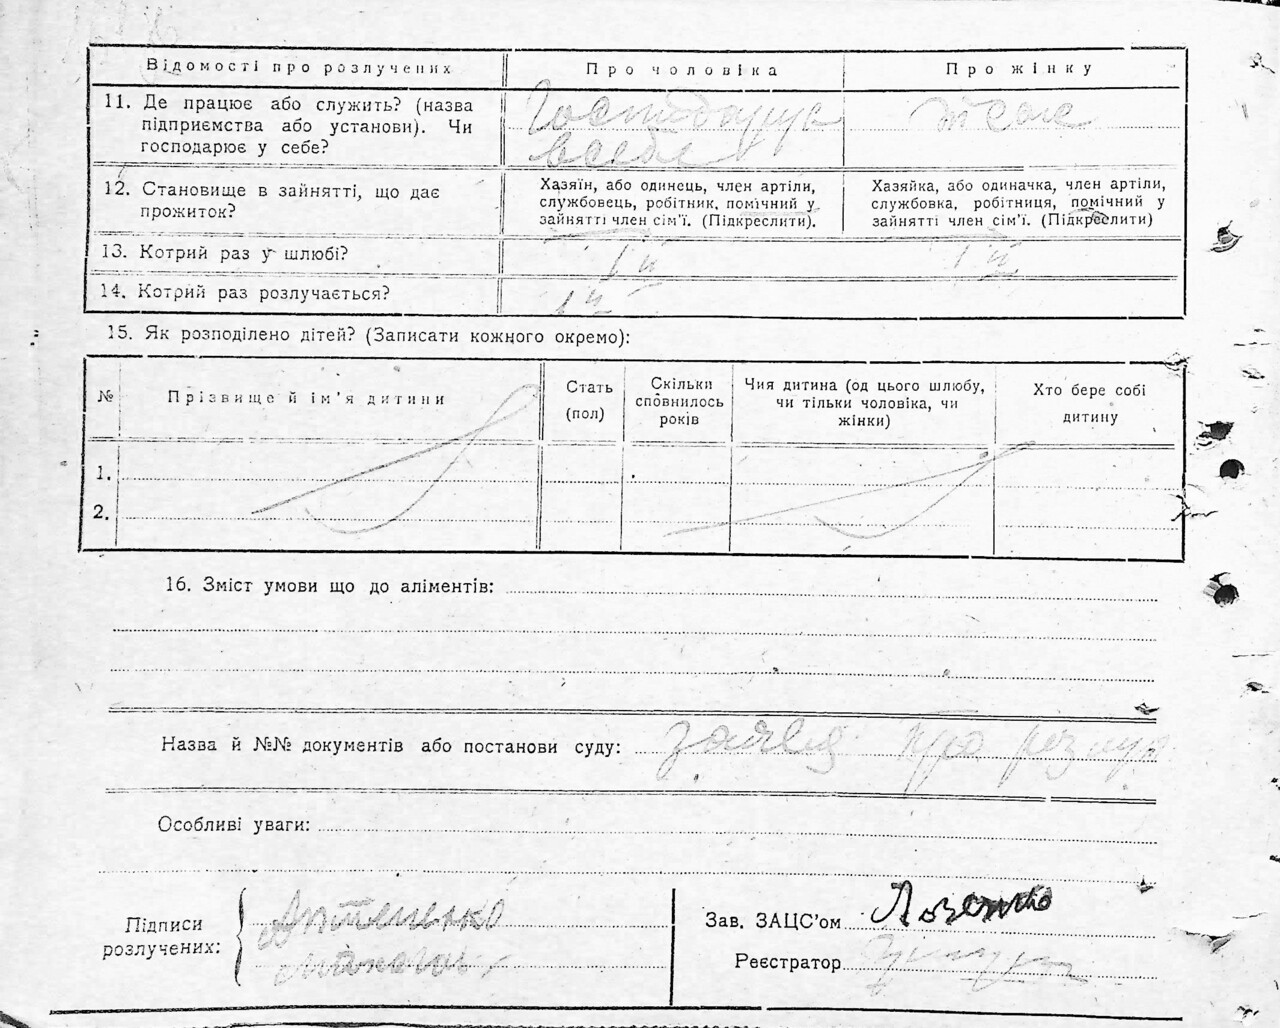 Відомості про розлучених Про чоловіка Про жінку
11. Де працює або служить? (назва підприємства або установи). Чи господарює у себе?
Господарує
в себе
12. Становище в зайнятті, що дає прожиток?
Хазяїн, або одинець, член артіли,
службовець, робітник, помічний у
зайнятті член сім'ї. (Підкреслити).
Хазяйка, або одиначка, член артіли,
службовка, робітниця, помічний у
зайнятті член сім'ї. (Підкреслити)
13. Котрий раз у шлюбі? 1й 1й
14. Котрий раз розлучається? 1й
15. Як розподілено дітей? (Записати кожного окремо):
№ Прізвище й ім'я дитини
Стать
(пол)
Скільки
сповнилось
років
Чия дитина (од цього шлюбу,
чи тільки чоловіка, чи
жінки)
Хто бере собі
дитину
1.
2.
16. Зміст умови що до аліментів:
Назва й №№ документів або постанови суду: заява про розлук
Особливі уваги:
Підписи
розлучених:
Зав. ЗАЦС'ом
Реєстратор